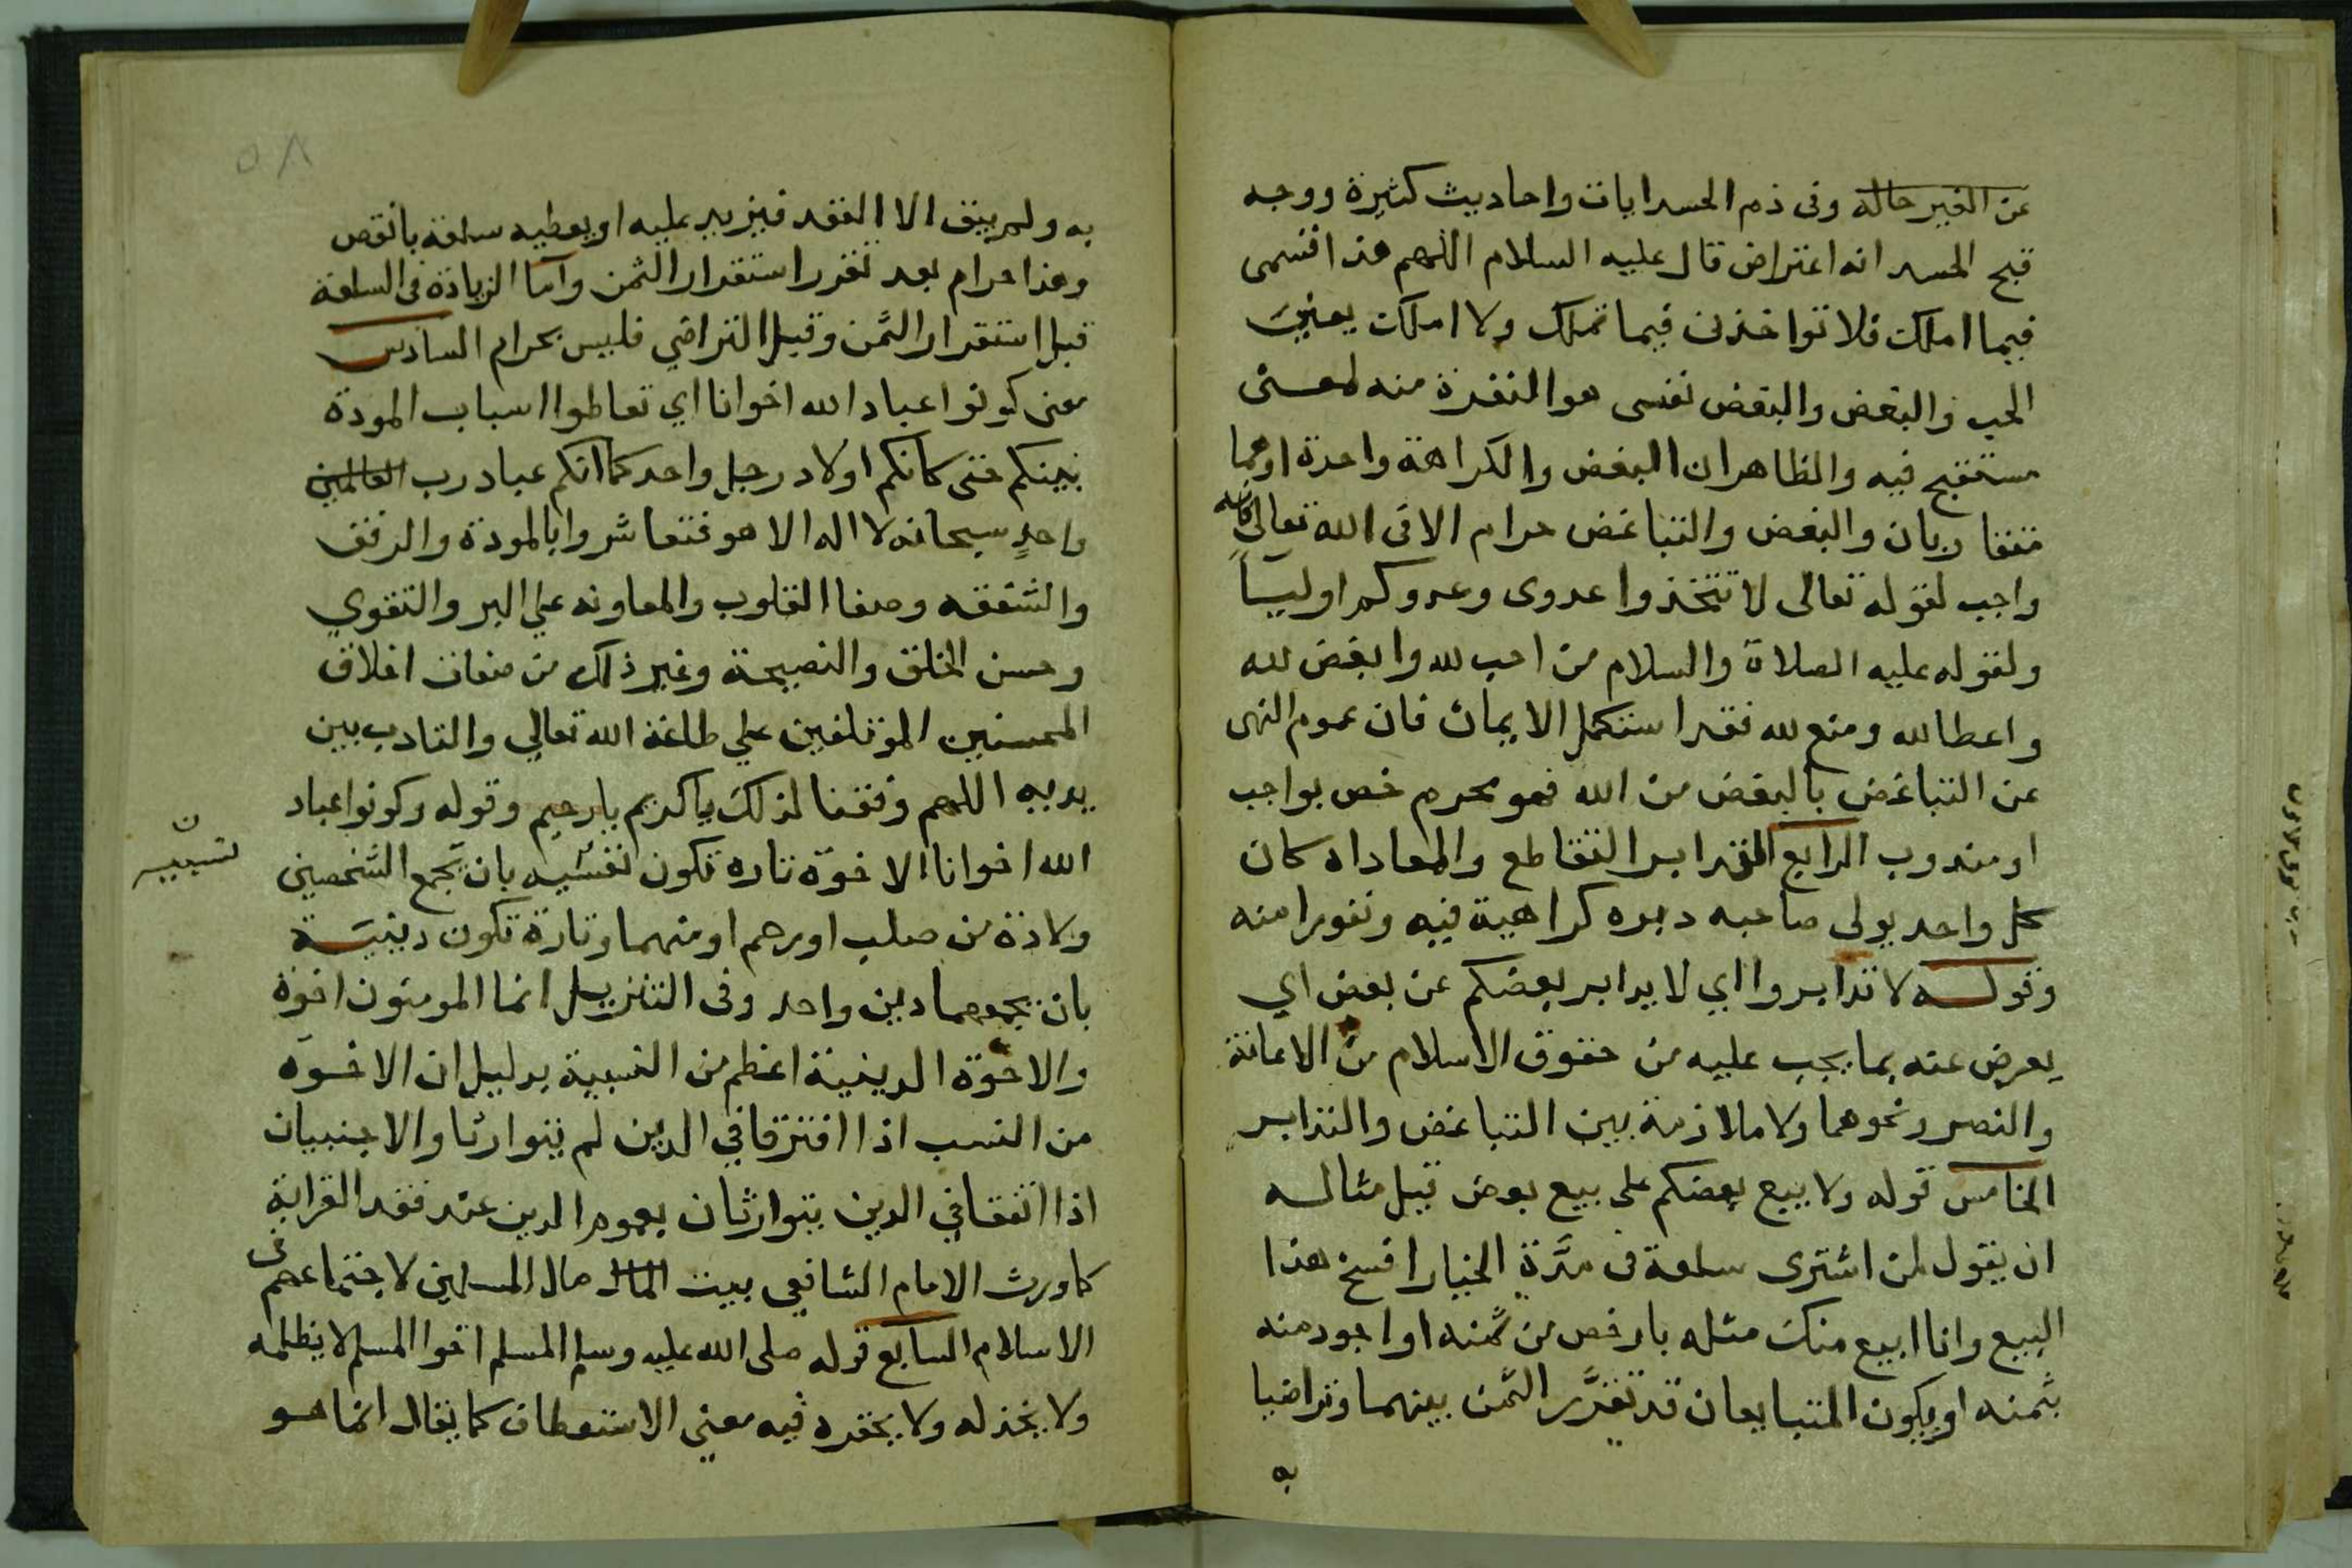 عن الغير حاله وفى ذم الحسد ايات واحاديث كثيرة ووجه
قبح الحسد انه اعتراض قال عليه السلام اللهم هذا قسمى
فيما املك فلا تواخذنى فيما تملك ولا املك يعني
الحب والبغض والبغض نفسى هو النفرة منه لمعنى
مستقبح فيه والظاهر ان البغض والكراهة واحدة اوهما
متقاربان والبغض والتباغض حرام الا فى الله تعالى فانه
واجب لقوله تعالى لا تتخذوا عدوى وعدوكم اولياً
ولقوله عليه الصلاة والسلام من احب لله وابغض لله
واعطا لله ومنع لله فقد استكمل الايمان فان عموم النهى
عن التباغض بالبغض من الله فهو محرم خص بواجب
او مندوب الرابع التدابر التقاطع والمعاداه كان
كل واحد يولى صاحبه دبره كراهية فيه ونفورا منه
وقوله لا تدابروا اي لا يدابر بعضكم عن بعض اي
يعرض عنه بما يجب عليه من حقوق الاسلام من الاعانة
والنصر ونحوهما ولا ملازمة بين التباغض والتدابر
الخامس قوله ولا يبيع بعضكم على بيع بعض قيل مثاله
ان يقول لمن اشترى سلعة فى مدة الخيار افسخ هذا
البيع وانا ابيع منك مثله بارخص من ثمنه او اجود منه
بثمنه او يكون المتبايعان قد تقرر الثمن بينهما وتراضيا
به
٥٨
به ولم يبق الا العقد فيزيد عليه او يعطيه سلعة بانقص
وهذا حرام بعد تقرر استقرار الثمن واما الزيادة فى السلعة
قبل استقرار الثمن وقبل التراضي فليس بحرام السادس
معنى كونوا عباد الله اخوانا اي تعاطوا اسباب المودة
بينكم حتى كانكم اولاد رجل واحد كما انكم عباد رب العالمين
واحدٍ سبحانه لا اله الا هو فتعاشروا بالمودة والرفق
والشفقه وصفا القلوب والمعاونه علي البر والتقوي
وحسن الخلق والنصيحة وغير ذلك من صفات اخلاق
المحسنين المؤتلفين علي طاعة الله تعالي والتادب بين
يديه اللهم وفقنا لذلك يا كريم يا رحيم وقوله وكونوا عباد
الله اخوانا الاخوة تاره تكون نفسيه بان تجمع الشخصين
ن
نسبيه
ولادة من صلب اورحم او منهما وتارة تكون دينيّة
بان يجمعهما دين واحد وفى التنزيل انما المومنون اخوة
والاخوة الدينية اعظم من النسبية بدليل ان الاخوه
من النسب اذا افترقا في الدين لم يتوارثا والاجنبيان
اذا اتفقا في الدين يتوارثان بعموم الدين عند فقد القرابة
كما ورث الامام الشافعي بيت المال مال المسلمين لاجتماعهم فى
الاسلام السابع قوله صلى الله عليه وسلم المسلم اخوا المسلم لا يظلمه
ولا يخذله ولا يحقره فيه معني الاستعطاف كما يقال انما هو